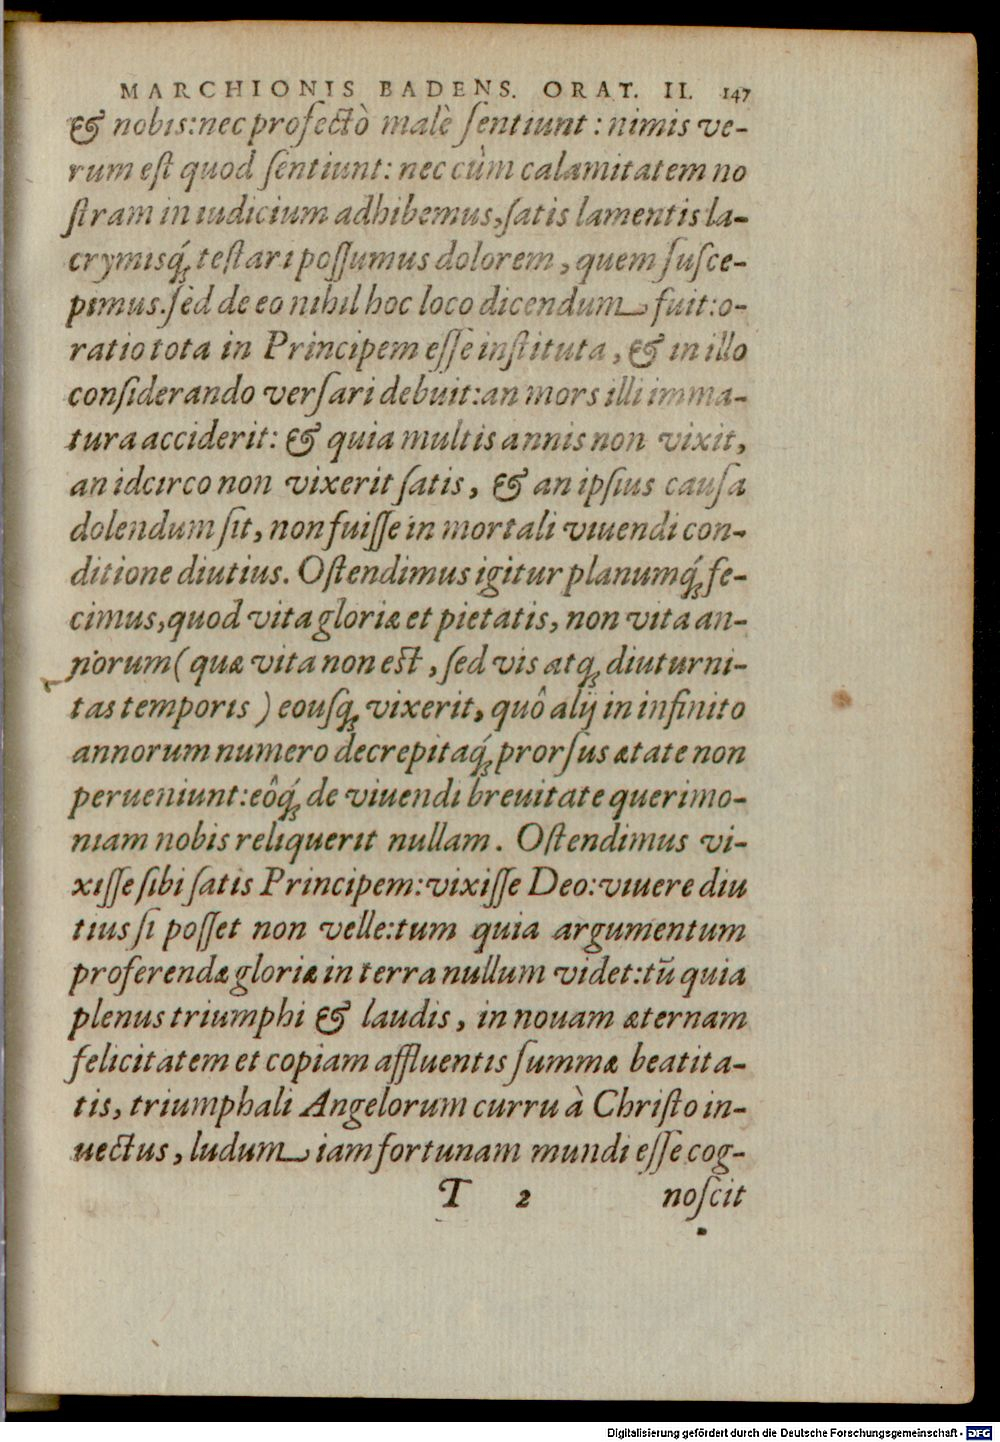 MARCHIONIS BADENS. ORAT. II. 147
& nobis: nec profectò malè ſentiunt: nimis ve-
rum eſt quod ſentiunt: nec cùm calamitatem no
ſtram in iudicium adhibemus, ſatis lamentis la-
crymisq́; teſtari poſſumus dolorem, quem ſuſce-
pimus. ſed de eo nihil hoc loco dicendum fuit: o-
ratio tota in Principem eſſe inſtituta, & in illo
conſiderando verſari debuit: an mors illi imma-
tura acciderit: & quia multis annis non vixit,
an idcirco non vixerit ſatis, & an ipſius cauſa
dolendum ſit, non fuiſſe in mortali viuendi con-
ditione diutius. Oſtendimus igitur planumq́; fe-
cimus, quod vita gloriæ et pietatis, non vita an-
norum (quæ vita non est, ſed vis atq; diuturni-
tas temporis) eouſq; vixerit, quô alij in infinito
annorum numero decrepitaq́; prorſus ætate non
perueniunt: eôq́; de viuendi breuitate querimo-
niam nobis reliquerit nullam. Oſtendimus vi-
xiſſe ſibi ſatis Principem: vixiſſe Deo: viuere diu
tius ſi poſſet non velle: tum quia argumentum
proferendæ gloriæ in terra nullum videt: tũ quia
plenus triumphi & laudis, in nouam æternam
felicitatem et copiam affluentis ſummæ beatita-
tis, triumphali Angelorum curru à Chriſto in-
uectus, ludum iam fortunam mundi eſſe cog-
T 2 noſcit
Digitalisierung gefördert durch die Deutsche Forschungsgemeinschaft - DFG